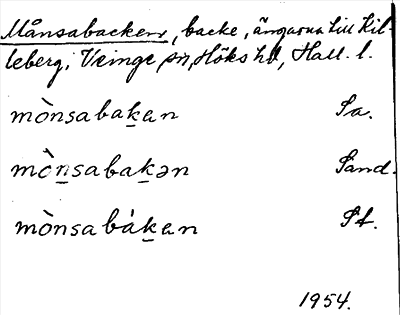 Månsabacken, backe, ängarna till Kil-
leberg; Veinge sn, Höks hd, Hall. l.
mònsabaḵen Sa.
mòṉsabaḵən Sand.
mònsabáḵen St.
1954.